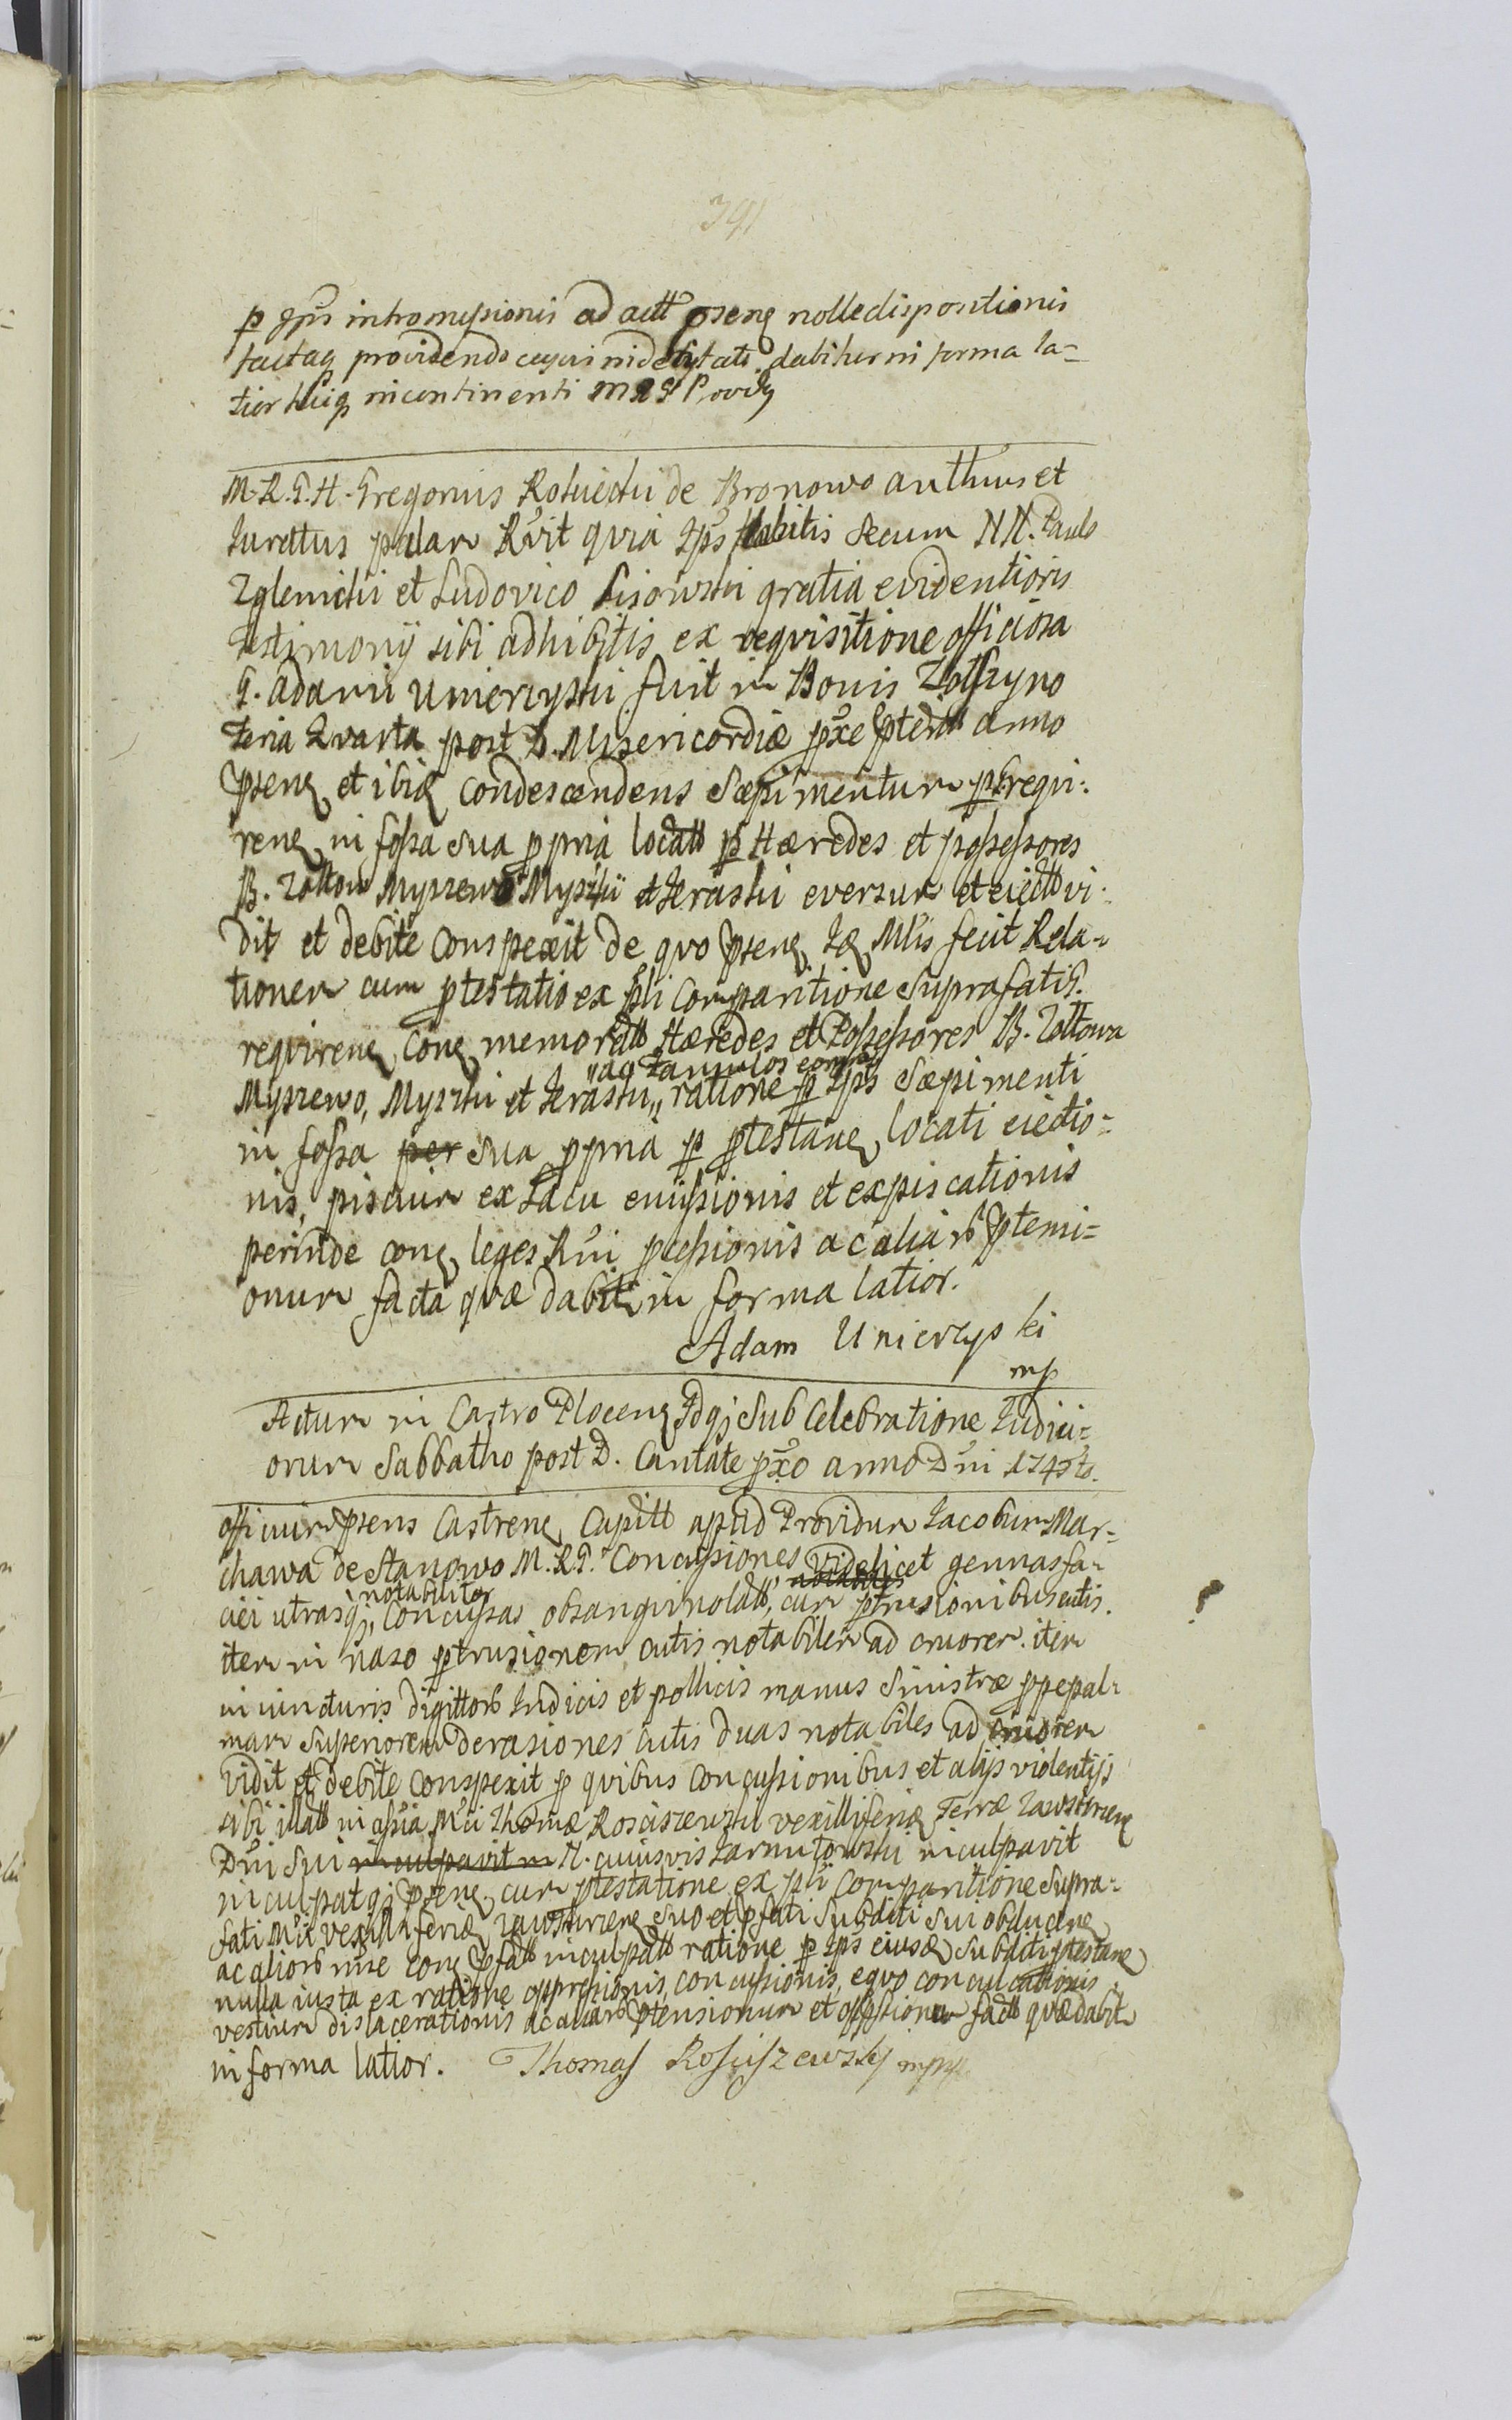 391
p ipsũ intromissionis ad actt psenę nolle dispositionis
factaq providendo dabitur in forma la=
tior incontinenti
M. R. G. H. Gregorius Roświcki de Bronowo authus et
Juratus palam Rv̄it qvia Ips habitis secum NN. Paulo
Zglenicki et Ludovico Lisowski gratia evidentioris
Testimonij sibi adhibitis ex reqvisitione officiosa
G. Adami Unierzyski fuit in Bonis
Feria Qvarta post D. Misericordiæ pxe pterita anno
psenę et ibiq condescendens Sæpimentum p reqvi:
renę in fossa sua ppria locatt p Hæredes et possessores
B. Zottow Myszewo Myszki et Jeraski eversum et eiectt vi:
dit et debite conspexit de qvo psenę Iq Mlis fecit Rela-
tionem cum ptestatio ex pli Comparitione Suprafatis.
reqvirenę conę memoratt Hæredes et Possessores B. Zottowa
„ac Famulos eorum
Myszewo, Myszki et Jeraski „ ratione p Ips Sæpimenti
in fossa per sua ppria p ptestanę locati eiectio=
nis, piscium ex Lacu emissionis et expiscationis
perinde conę leges Rni pcessionis ac aliar ptensi=
onum facta qvæ dabitr in forma latior.
Adam Unierzyski
mp
Actum in Castro Plocenę Idqj Sub Celebratione Judici=
orum Sabbatho post D. Cantate pxo anno Dni 1745to.
Officium psens Castrenę Capitt apud Providum Jacobum Mar=
chawa de Stanowo M. R. P. Concussiones Videlicet gennas fa-
notabiliter
ciei utrasqj, Concussas obsangvinolatt, cum ptrusionibus cutis.
item in naso ptrusionem cutis notabilem ad cruorem. item
in iuncturis digittor Indicis et pollicis manus Sinistræ ppe pal-
mam Superiorem derasiones cutis duas notabiles ad cruorem
Vidit et debite conspexit p qvibus Concussionibus et alijs violentijs
sibi illatt in assia Mci Thomæ Rosciszewski vexilliferiæ Terræ Zawskrnenę
Dni Sui inculpavit in N. cuiusvis Jarnutowski inculpavit
inculpatqj psenę cum ptestatione ex pli Comparitione Supra-
fati Mci vexilliferiæ Zawskrnenę Suo et pfati Subditi Sui obducenę
ac alior nne conę pfatt inculpatt ratione p Ips eiusq Subditi ptestanę
nulla iusta ex ratione oppressionis, concussionis, eqvo conculcationis
vestium dislacerationis ac aliar ptensionum et offensionum factt qvæ dabitr
in forma latior. Thomas Rosciszewsky mpp